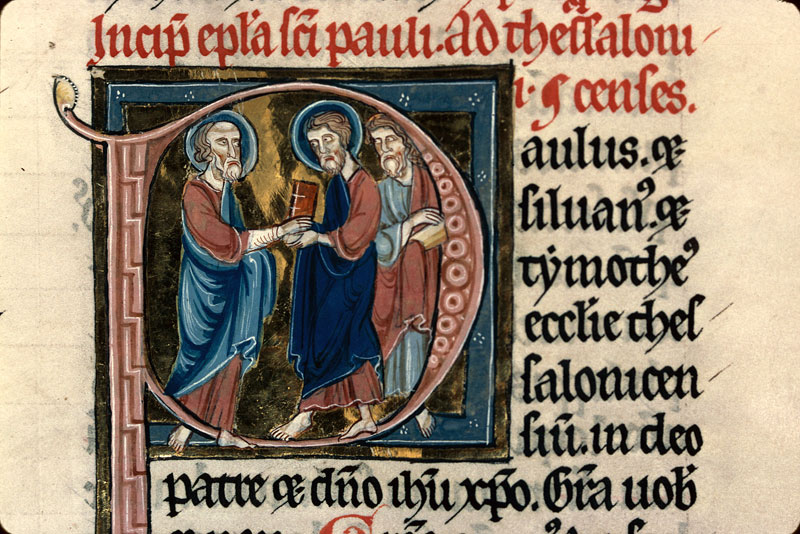 Incip̄ epl̄a sc̄i pauli. ad thessaloni
censes.
aulus. &
siluanꝰ. &
tymotheꝰ
eccl̄ie thes
salonicen
siū. in deo
patre & dn̄o ihū xp̄o. Gr̄a uob̄